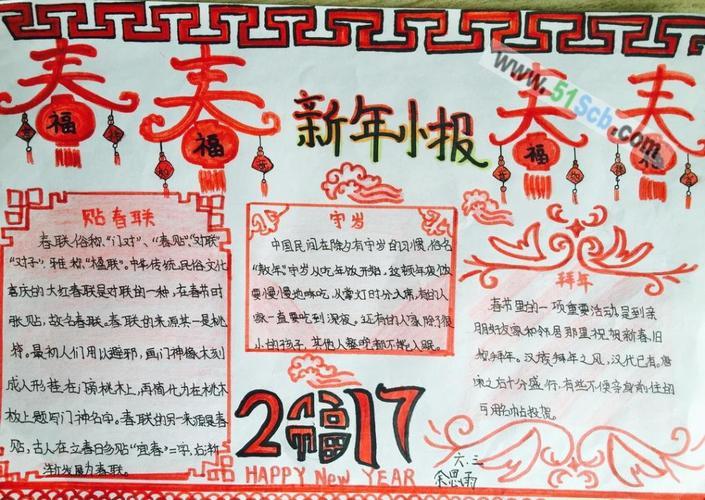 春 春 春 春
福 福 福 福
www.51Scb.com
新年小报
贴春联
春联,俗称"门对"、"春贴","对联"
"对子",雅称"楹联"。中华传统民俗文化
喜庆的大红春联是对联的一种,在春节时
张贴,故名春联。春联的来源其一是桃
符。最初人们用以避邪,画门神像木刻
成人形挂在门旁桃木上,再简化为在桃木
板上题写门神名字。春联的另一来源是春
贴,古人在立春日多贴"宜春"二字,后渐
渐发展为春联。
守岁
中国民间在除夕有守岁的习惯,俗名
"熬年"守岁从吃年饭开始,这顿年夜饭
要慢慢地吃,从掌灯时分入席,有的人
家一直要吃到深夜。还有的人家除了很
小的孩子,其他人整晚都不能入眠。
拜年
春节里的一项重要活动是到亲
朋好友家和邻居那里祝贺新春,旧
称拜年。汉族拜年之风,汉代已有。唐
宋之后十分盛行,有些不便亲身前往的
可用名帖投贺。
2福17
HAPPY NEW YEAR
六.三
余思雨